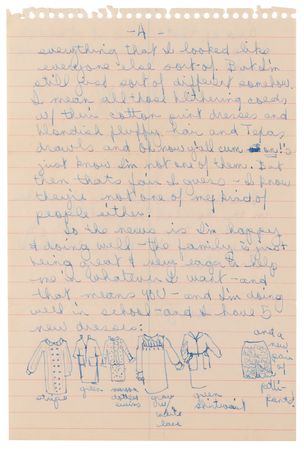 - 4 -
everything that I looked like
everyone else sort-of. But I'm
still just sort of different somehow.
I mean all those blithering coeds
w/ their cotton print dresses and
blondish fluffy hair and Texas
drawls and oh now y'all cum on!! I
just know I'm not one of them. But
then that's fair I guess - I know
they're not one of my kind of
people either.
So the news is I'm happy
& doing well - the family is just
being great & very eager to help
me in whatever I want - and
that means YOU - and I'm doing
well in school - and I have 5
new dresses:
and a
new
pair of
petti-
pants!
stripes
green
maroon
dotted
swiss
gray
w/
white
lace
green
shirtwaist